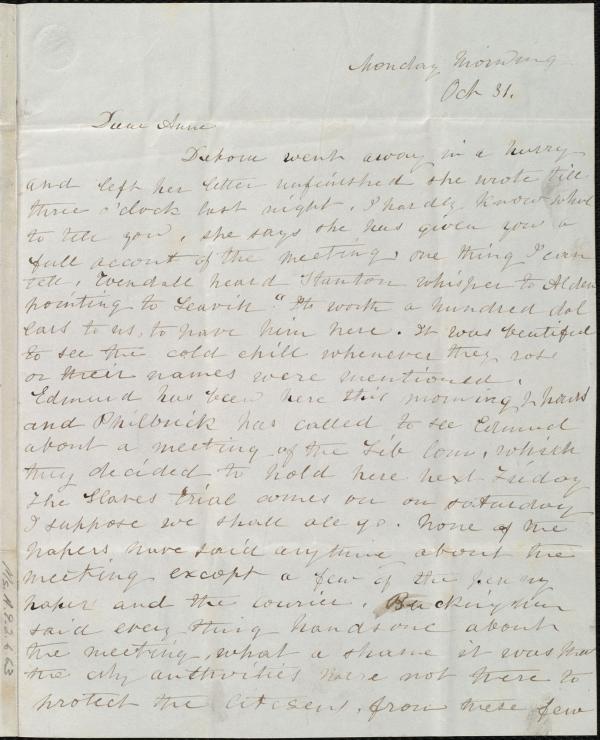 Monday Morning
Oct 31.
Dear Anne
Debora went away in a hurry
and left her letter unfinished she wrote till
three o'clock last night. I hardly know what
to tell you, she says she has given you a
full account of the meeting, one thing I can
tell, Wendall heard Stanton whisper to Alden
pointing to Leavitt "Its worth a hundred dol
lars to us, to have him here. It was beutiful
to see the cold chill whenever they rose
or their names were mentioned.
Edmund has been here this morning 2 hours
and Philbrick has called to see Edmund
about a meeting of the Lib Com, which
they decided to hold here next Friday
The Slaves trial comes on on saturday
I suppose we shall all go. None of the
papers have said anything about the
meeting except a few of the penny
paper and the courier. Buckingham
said every thing handsome about
the meeting, what a shame it was that
the city authorities were not there to
protect the citesens, from these few
Ms.A.9.2.6.63